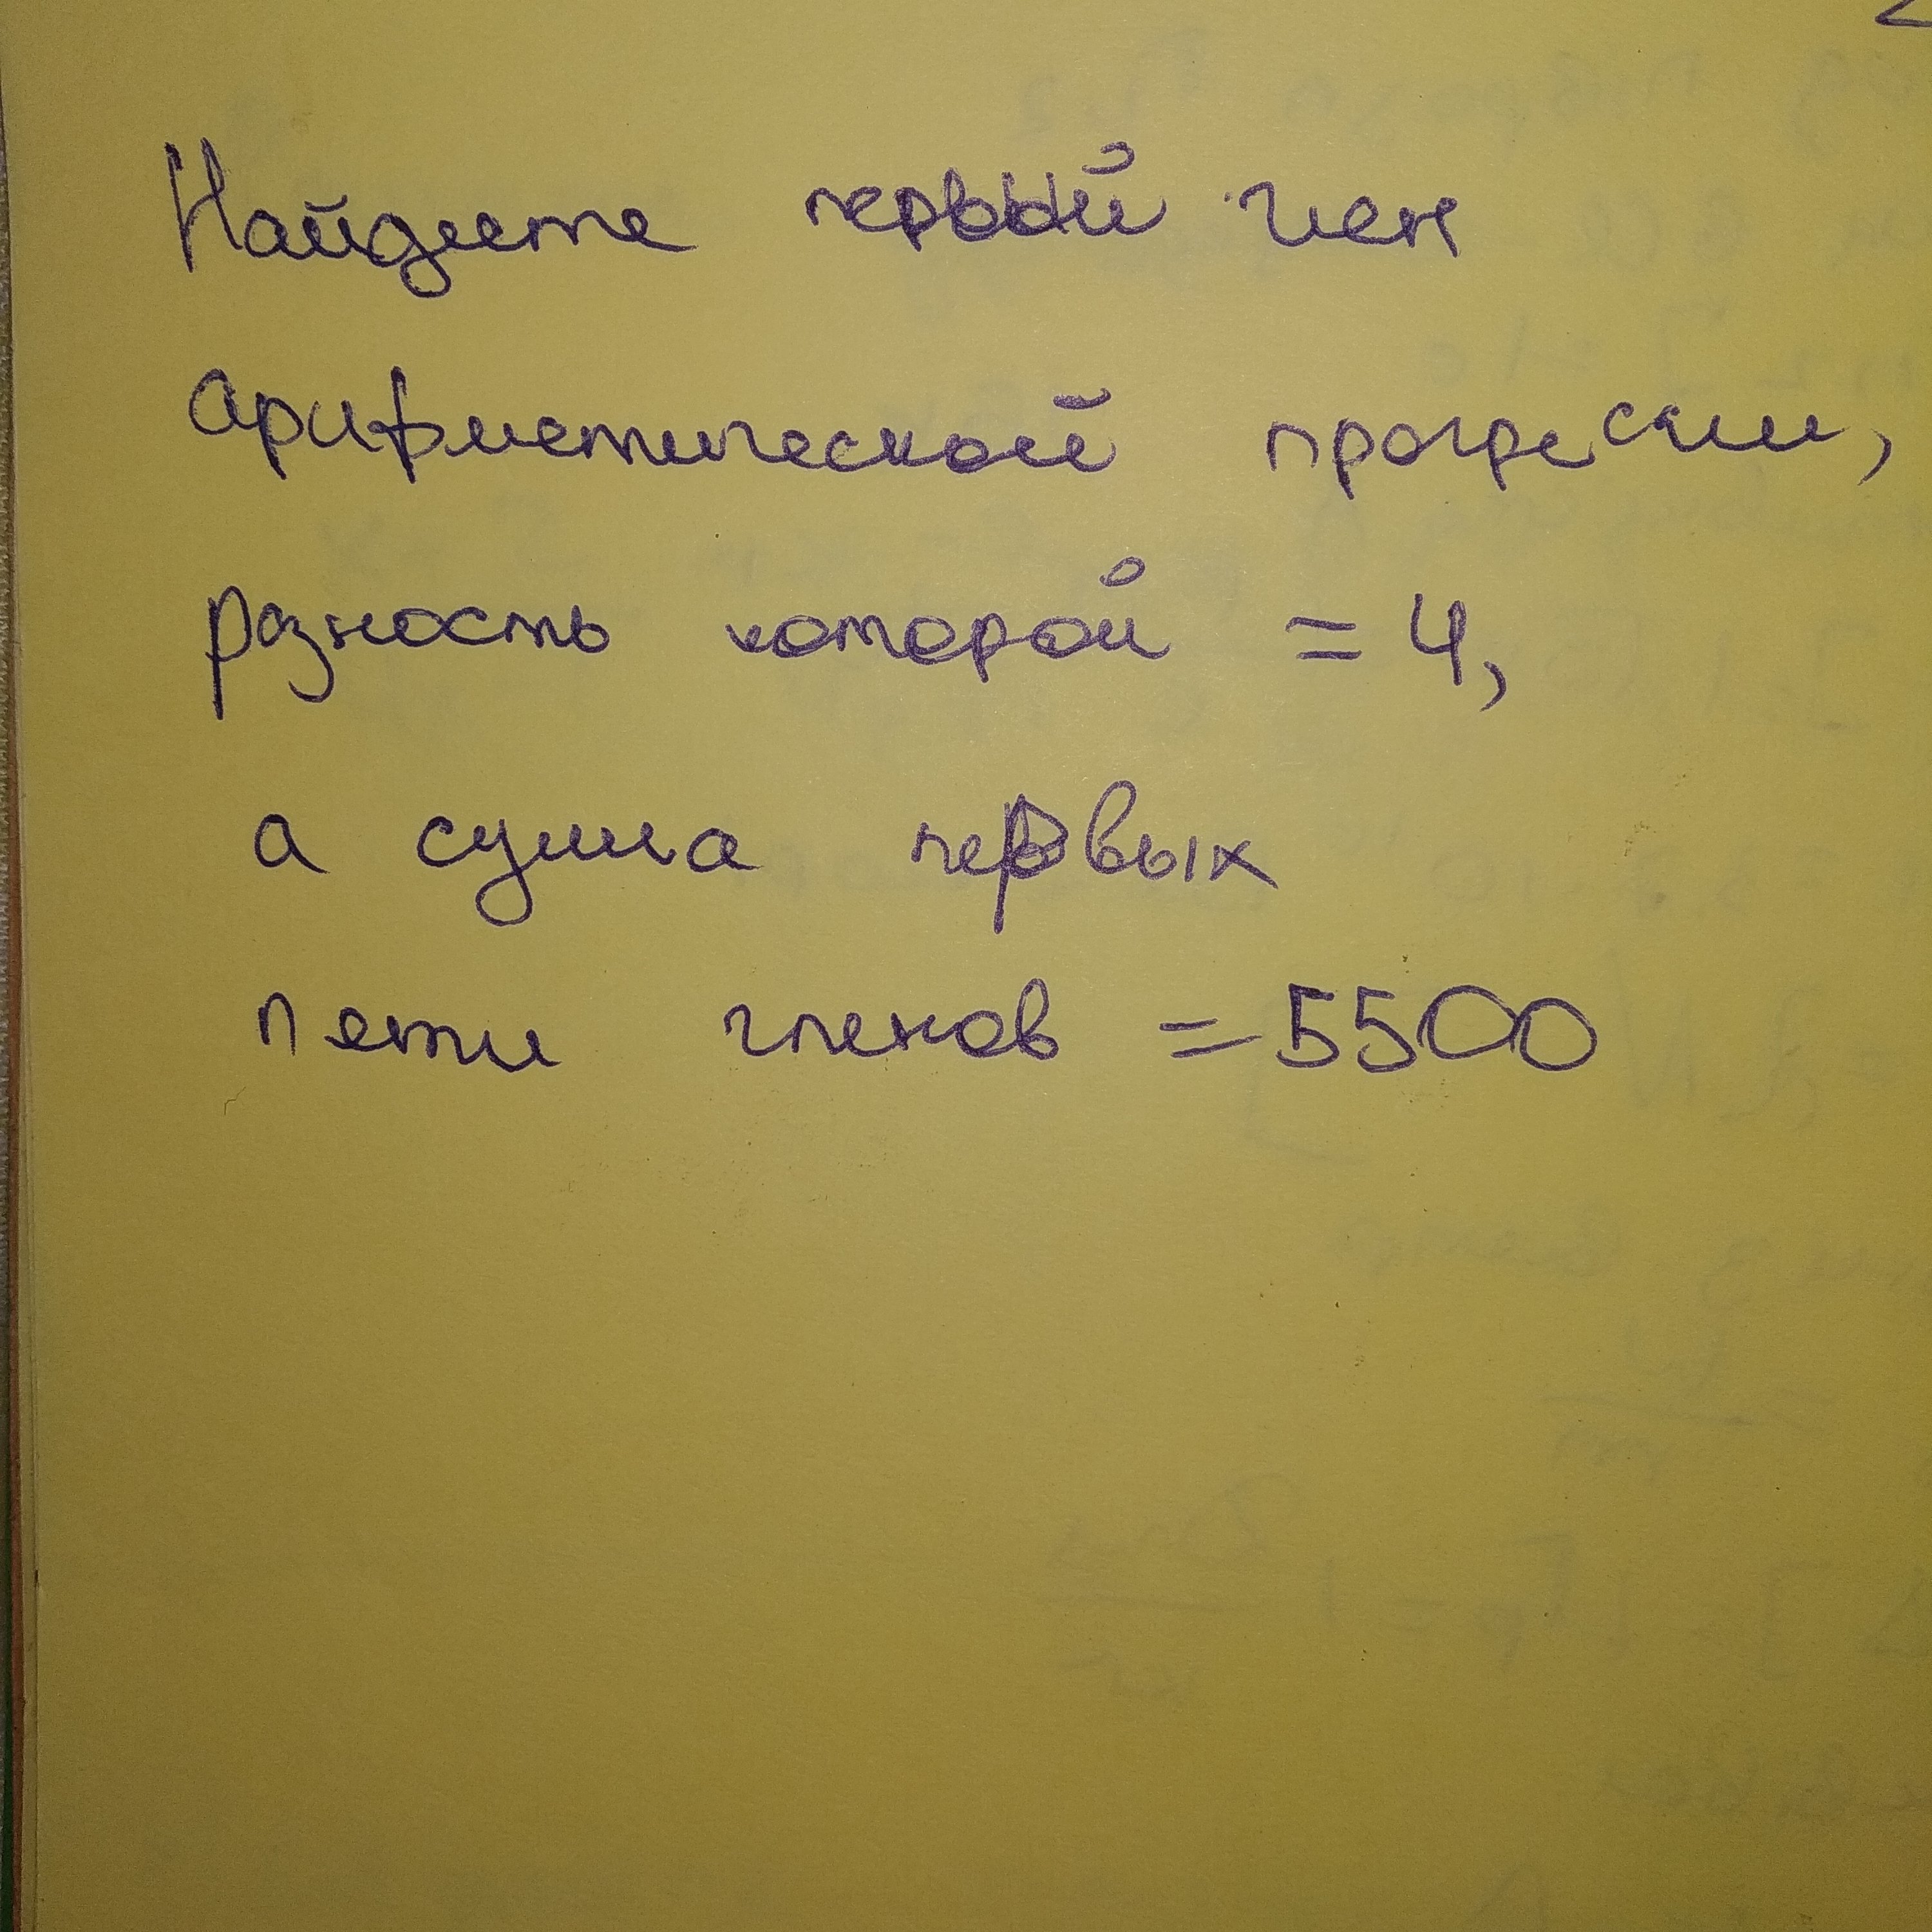 Найдите первый член
арифметической прогрессии,
разность которой = 4,
а сумма первых
пяти членов = 5500